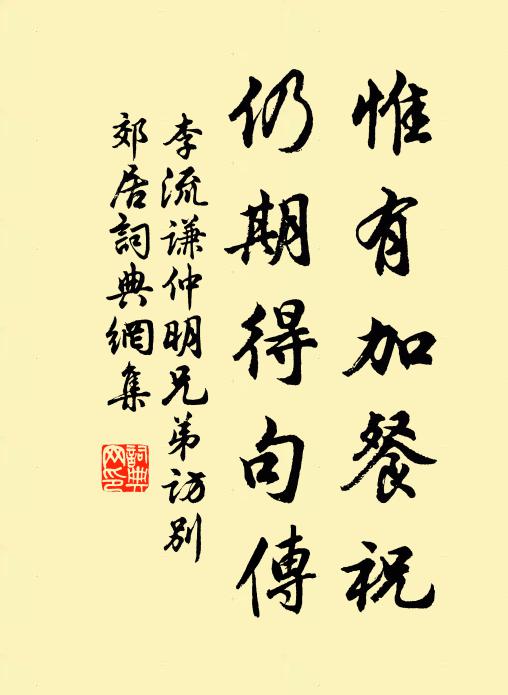 惟有加餐祝
仍期得句傳
李流謙仲明兄弟訪別
郊居詞典網集
詞典網印